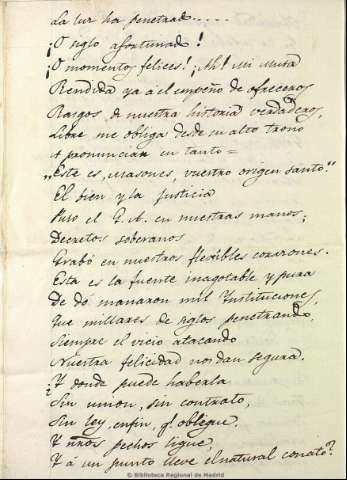 La luz ha penetrado.....
¡O siglo afortunado!
¡O momentos felices! ¡Ah! Mi Musa
Rendida ya á el empeño de ofreceros
Rasgos de nuestra historia verdaderos,
Libre me obliga desde su alto trono
A pronunciar en tanto=
"Este es, Masones, vuestro origen santo."
El bien y la justicia
Puso el G. A. en nuestras manos;
Decretos soberanos
Grabó en nuestros flexibles corazones.
Esta es la fuente inagotable y pura
De dó manaron mil Instituciones,
Que millares de siglos penetrando,
Siempre el vicio atacando
Nuestra felicidad nos dan segura.
¿Y donde puede haberla
Sin union, sin contrato,
Sin ley, enfin, q.e obligue,
Y nños pechos ligue,
Y á un punto lleve el natural conato?
© Biblioteca Regional de Madrid